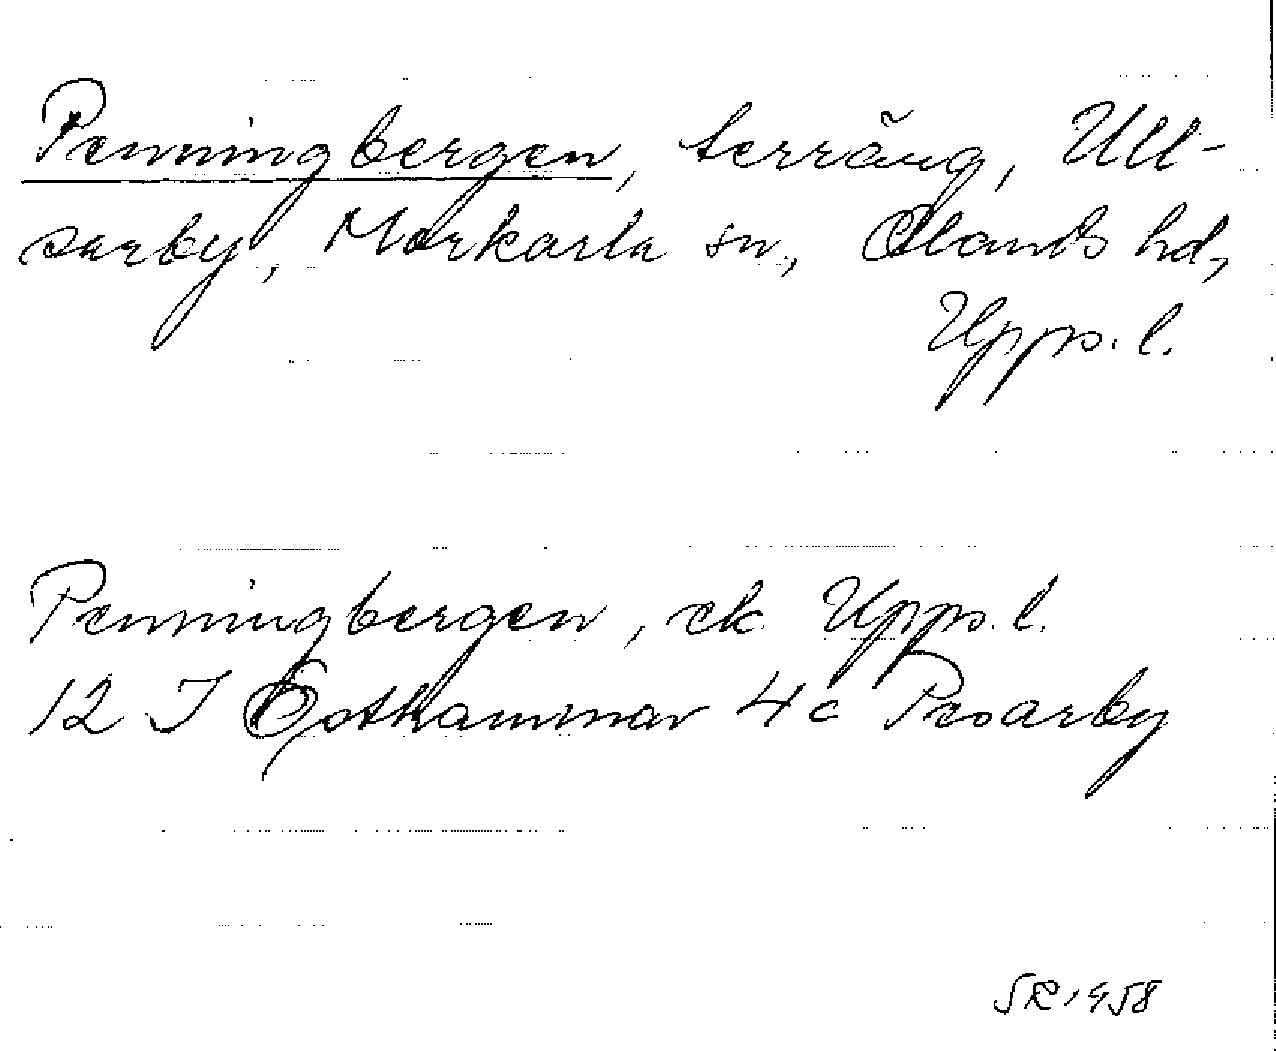 Penningbergen, terräng, Ull-
sarby, Morkarla sn, Olands hd,
Upps. l.
Penningbergen, ek. Upps. l.
12 I Östhammar 4c Prsarby
SR 1958